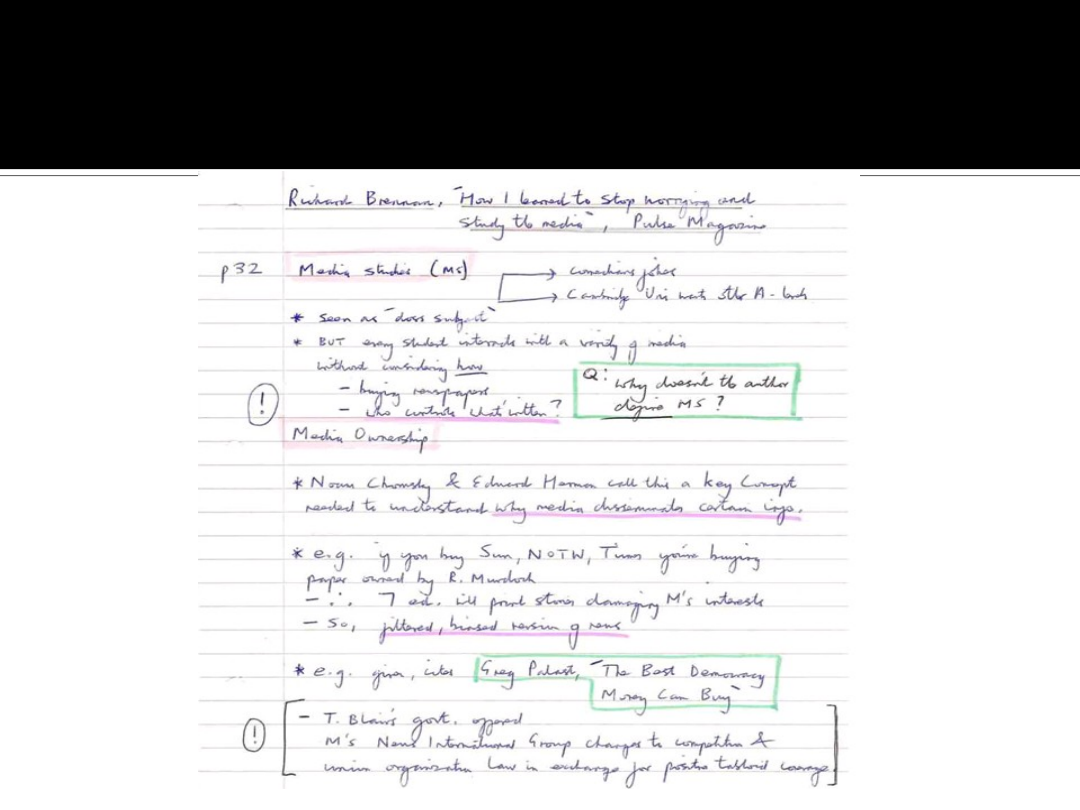 Richard Brennan, "How I learned to stop worrying and
study the media", Pulse Magazine
p32 Media studies (MS) → comedians jokes
→ Cambridge Uni wants other A-levels
* seen as "doss subject"
* BUT every student interacts with a variety of media
without considering how
- buying newspapers
(!) - who controls what's written?
Q: why doesn't the author
define MS?
Media Ownership
* Noam Chomsky & Edward Herman call this a key concept
needed to understand why media disseminates certain info.
* e.g. if you buy Sun, NOTW, Times you're buying
paper owned by R. Murdoch
- ∴ ed. will print stories damaging M's interests
- so, filtered, biased version of news
* e.g. given, cites Greg Palast, "The Best Democracy
Money Can Buy"
(!) [- T. Blair's govt. offered
M's News International Group changes to competition &
union organization law in exchange for positive tabloid coverage]